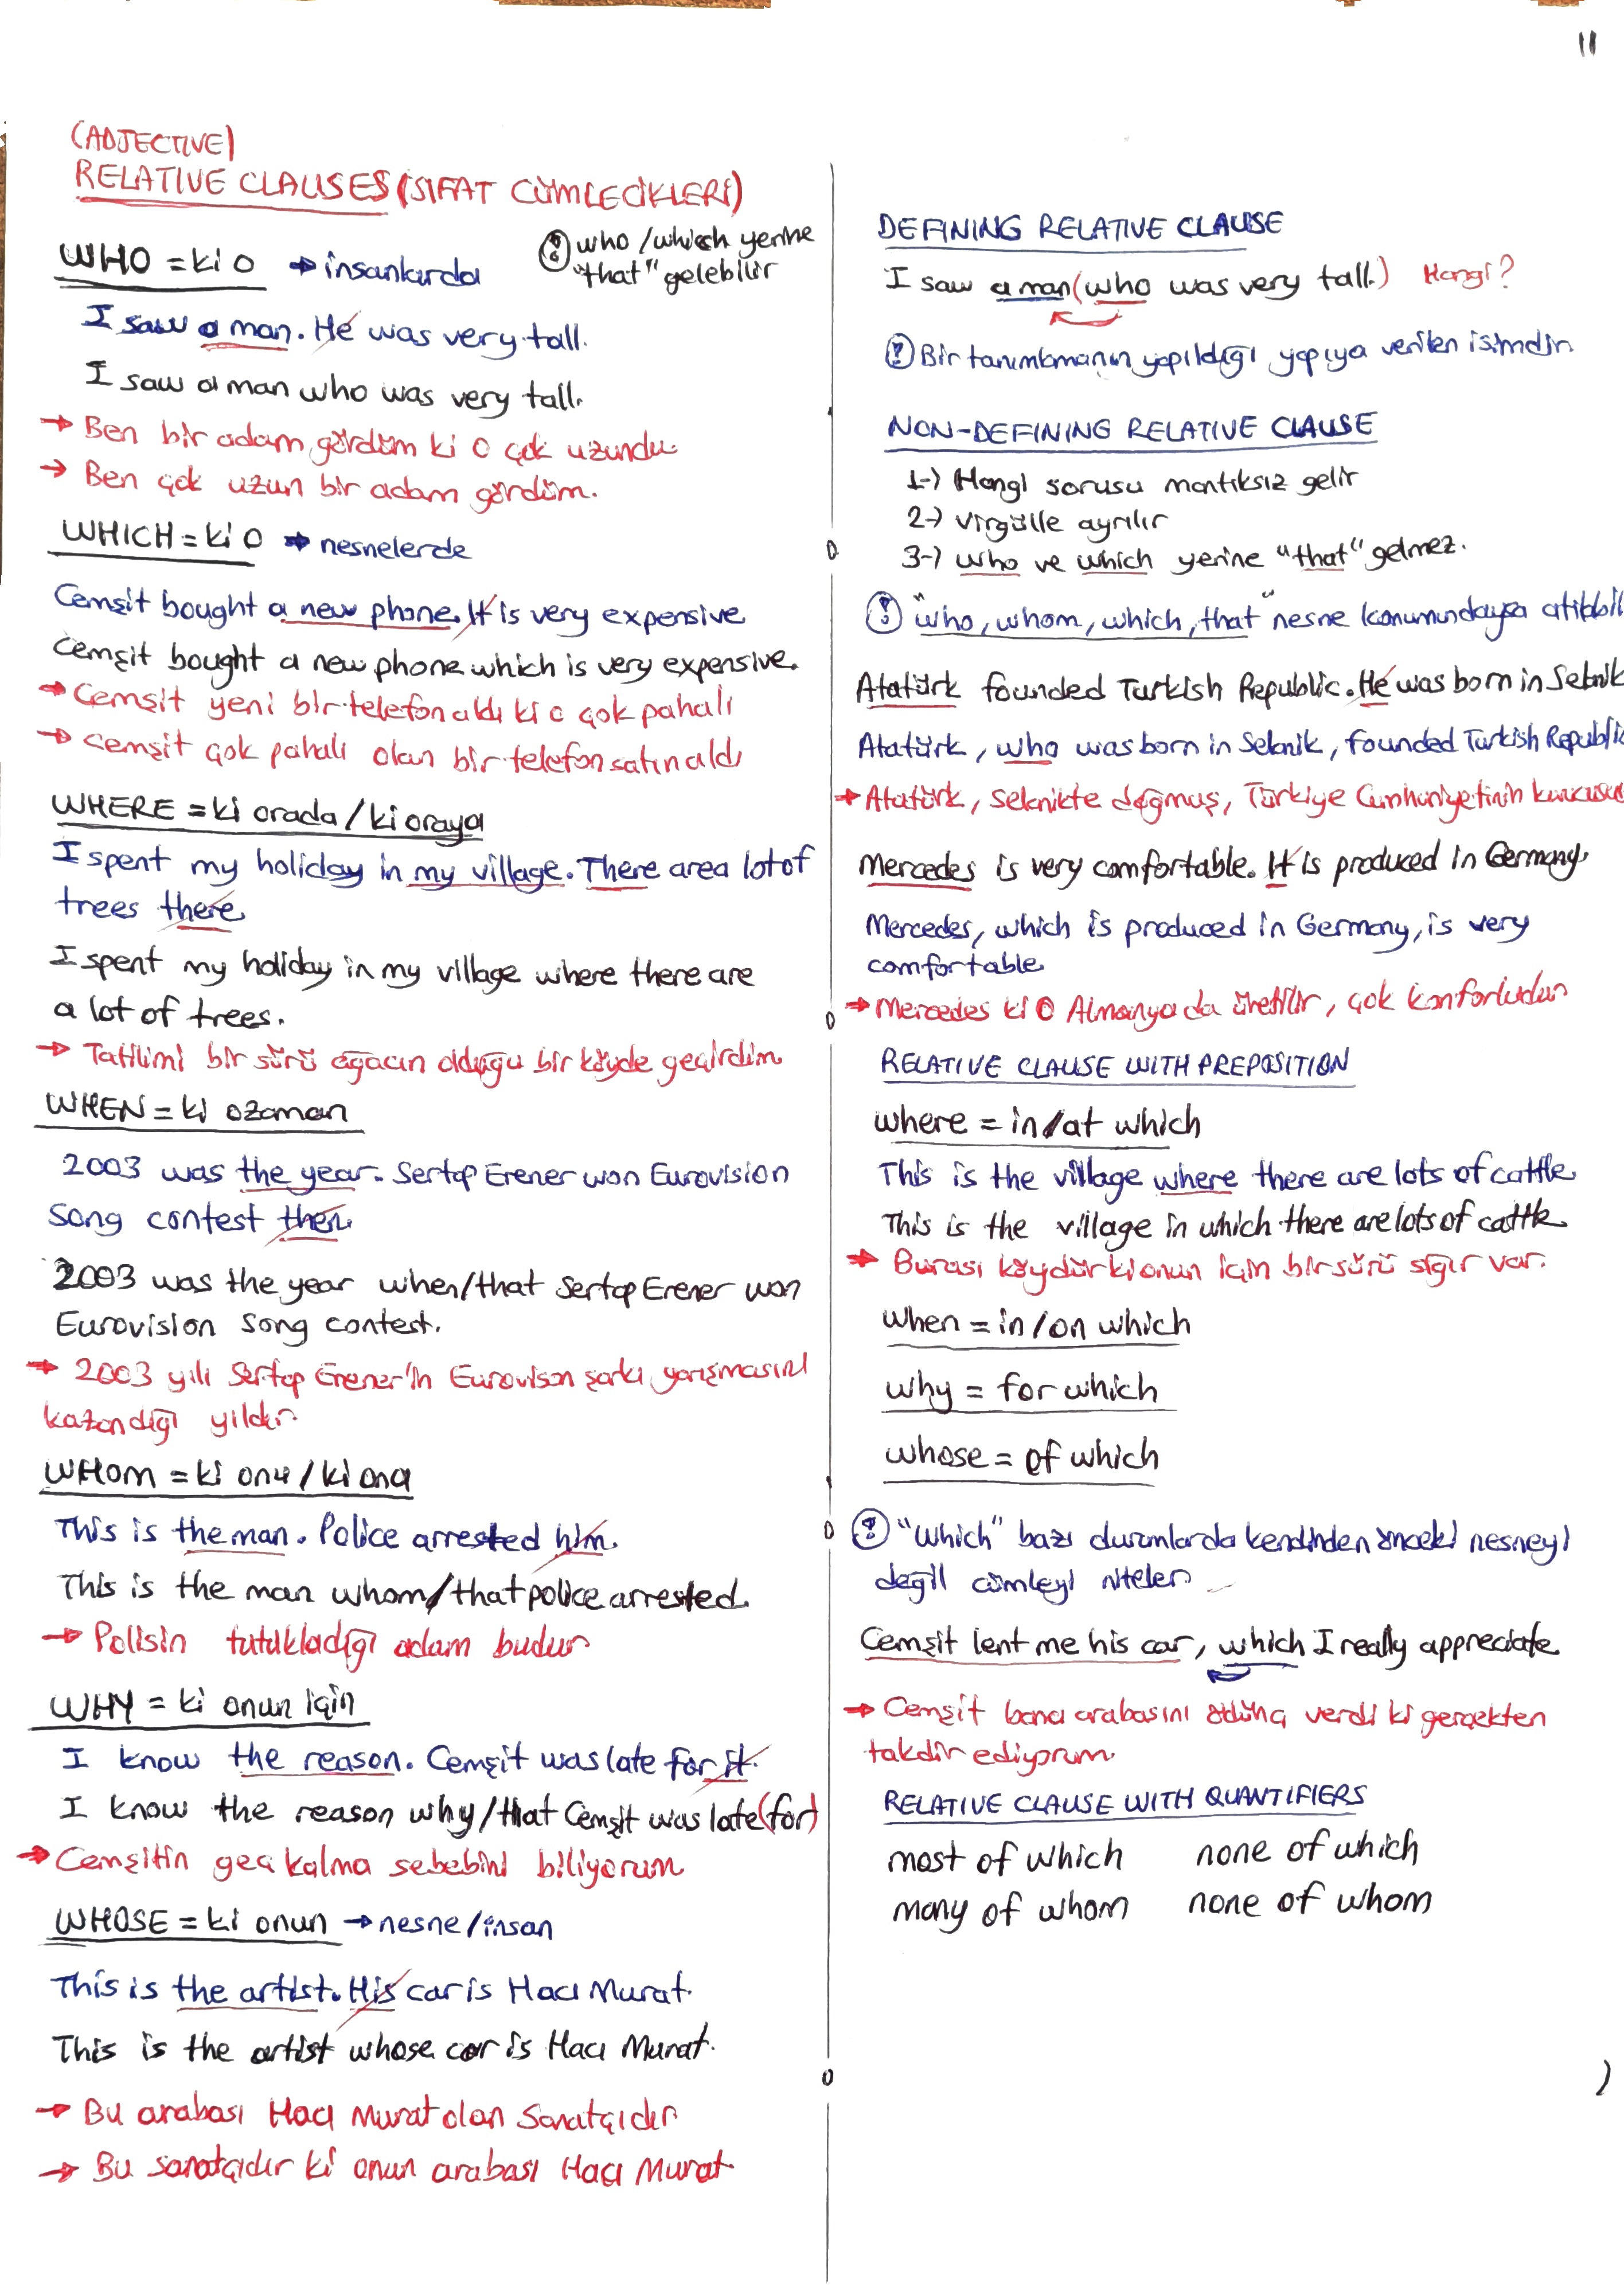 11
(ADJECTIVE)
RELATIVE CLAUSES (SIFAT CÜMLECİKLERİ)
WHO = ki o → insanlarda
! who/which yerine
"that" gelebilir
I saw a man. He was very tall.
I saw a man who was very tall.
→ Ben bir adam gördüm ki o çok uzundu.
→ Ben çok uzun bir adam gördüm.
WHICH = ki o → nesnelerde
Cemşit bought a new phone. It is very expensive
Cemşit bought a new phone which is very expensive.
→ Cemşit yeni bir telefon aldı ki o çok pahalı
→ Cemşit çok pahalı olan bir telefon satın aldı
WHERE = ki orada / ki oraya
I spent my holiday in my village. There are a lot of
trees there
I spent my holiday in my village where there are
a lot of trees.
→ Tatilimi bir sürü ağacın olduğu bir köyde geçirdim.
WHEN = ki o zaman
2003 was the year. Sertap Erener won Eurovision
Song contest then.
2003 was the year when/that Sertap Erener won
Eurovision Song contest.
→ 2003 yılı Sertap Erener'in Eurovison şarkı yarışmasını
kazandığı yıldır.
WHOM = ki onu / ki ona
This is the man. Police arrested him.
This is the man whom/that police arrested.
→ Polisin tutukladığı adam budur
WHY = ki onun için
I know the reason. Cemşit was late for it.
I know the reason why/that Cemşit was late (for)
→ Cemşitin geç kalma sebebini biliyorum
WHOSE = ki onun → nesne/insan
This is the artist. His car is Hacı Murat.
This is the artist whose car is Hacı Murat.
→ Bu arabası Hacı Murat olan Sanatçıdır
→ Bu sanatçıdır ki onun arabası Hacı Murat
DEFINING RELATIVE CLAUSE
I saw a man (who was very tall.) Hangi?
! Bir tanımlamanın yapıldığı yapıya verilen isimdir
NON-DEFINING RELATIVE CLAUSE
1-) Hangi sorusu mantıksız gelir
2-) virgülle ayrılır
3-) who ve which yerine "that" gelmez.
! "who, whom, which, that" nesne konumundaysa atılabil
Atatürk founded Turkish Republic. He was born in Selanik
Atatürk, who was born in Selanik, founded Turkish Republic
→ Atatürk, Selanikte doğmuş, Türkiye Cumhuriyetinin kurucusu
Mercedes is very comfortable. It is produced in Germany.
Mercedes, which is produced in Germany, is very
comfortable
→ Mercedes ki o Almanya da üretilir, çok konforludur
RELATIVE CLAUSE WITH PREPOSITION
where = in/at which
This is the village where there are lots of cattle
This is the village in which there are lots of cattle
→ Burası köydür ki onun için bir sürü sığır var.
when = in/on which
why = for which
whose = of which
! "which" bazı durumlarda kendinden önceki nesneyi
değil cümleyi niteler
Cemşit lent me his car, which I really appreciate
→ Cemşit bana arabasını ödünç verdi ki gerçekten
takdir ediyorum.
RELATIVE CLAUSE WITH QUANTIFIERS
most of which none of which
many of whom none of whom